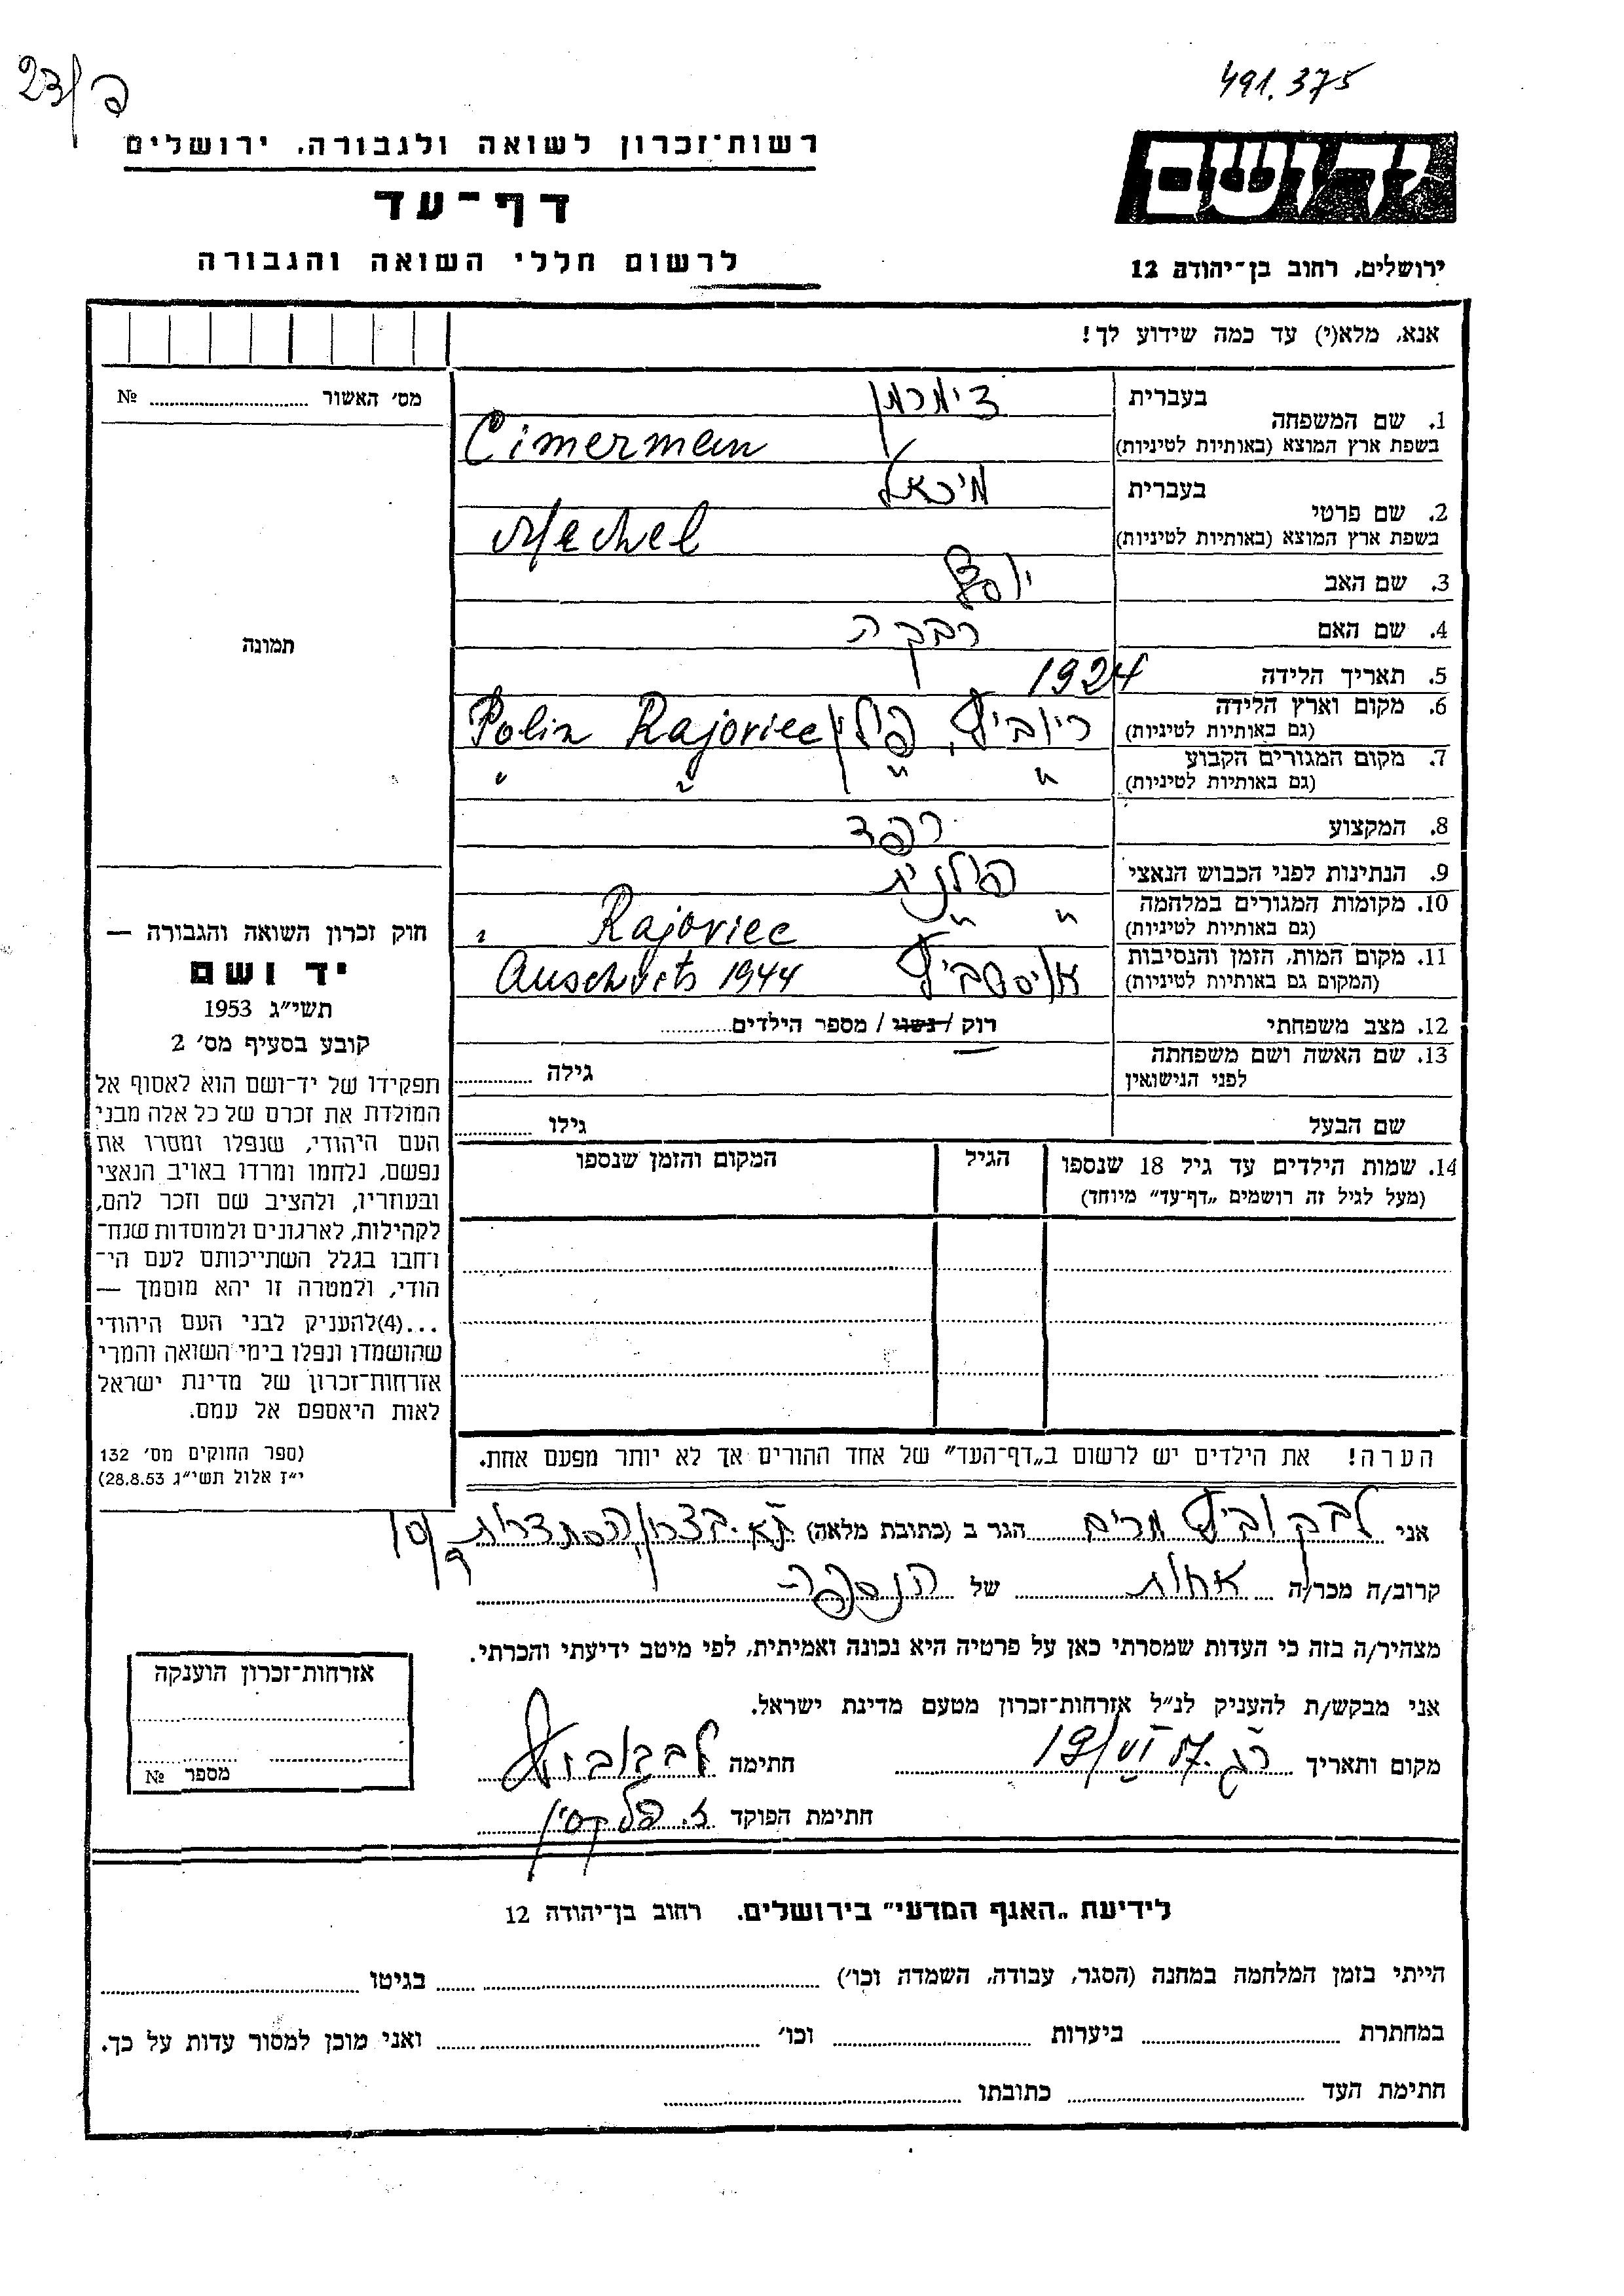 491.375
23/פ
יד ושם
רשות־זכרון לשואה ולגבורה, ירושלים
דף־עד
לרשום חללי השואה והגבורה
ירושלים, רחוב בן־יהודה 12
אנא, מלא(י) עד כמה שידוע לך!
מס׳ האשור №
1. שם המשפחה בעברית צימרמן
בשפת ארץ המוצא (באותיות לטיניות) Cimerman
2. שם פרטי בעברית מיכאל
בשפת ארץ המוצא (באותיות לטיניות) Mechel
3. שם האב יוסף
4. שם האם רבקה
5. תאריך הלידה 1924
6. מקום וארץ הלידה (גם באותיות לטיניות) פולין Rajoviec Polin
7. מקום המגורים הקבוע (גם באותיות לטיניות) " " " "
8. המקצוע רפד
9. הנתינות לפני הכבוש הנאצי פולנית
10. מקומות המגורים במלחמה (גם באותיות לטיניות) " " Rajoviec "
11. מקום המות, הזמן והנסיבות (המקום גם באותיות לטיניות) Auschvits 1944
12. מצב משפחתי רוק / נשוי / מספר הילדים
13. שם האשה ושם משפחתה לפני הנישואין גילה
שם הבעל גילו
14. שמות הילדים עד גיל 18 שנספו הגיל המקום והזמן שנספו
(מעל לגיל זה רושמים „דף־עד” מיוחד)
הערה! את הילדים יש לרשום ב„דף־העד” של אחד ההורים אך לא יותר מפעם אחת.
תמונה
חוק זכרון השואה והגבורה —
יד ושם
תשי״ג 1953
קובע בסעיף מס׳ 2
תפקידו של יד־ושם הוא לאסוף אל
המולדת את זכרם של כל אלה מבני
העם היהודי, שנפלו ומסרו את
נפשם, נלחמו ומרדו באויב הנאצי
ובעוזריו, ולהציב שם וזכר להם,
לקהילות, לארגונים ולמוסדות שנח־
רחבו בגלל השתייכותם לעם הי־
הודי, ולמטרה זו יהא מוסמך —
...(4)להעניק לבני העם היהודי
שהושמדו ונפלו בימי השואה והמרי
אזרחות־זכרון של מדינת ישראל
לאות היאספם אל עמם.
(ספר החוקים מס׳ 132
י״ז אלול תשי״ג 28.8.53)
אני לבקוביץ מרים הגר ב (כתובת מלאה) ת״א. בצרון, הסתדרות
קרוב/ה מכר/ה אחות של הנספה
מצהיר/ה בזה כי העדות שמסרתי כאן על פרטיה היא נכונה ואמיתית, לפי מיטב ידיעתי והכרתי.
אני מבקש/ת להעניק לנ״ל אזרחות־זכרון מטעם מדינת ישראל.
מקום ותאריך 19/VI 57 חתימה
חתימת הפוקד
אזרחות־זכרון הוענקה
מספר №
לידיעת „האגף המדעי” בירושלים. רחוב בן־יהודה 12
הייתי בזמן המלחמה במחנה (הסגר, עבודה, השמדה וכו׳) בגיטו
במחתרת ביערות וכו׳ ואני מוכן למסור עדות על כך.
חתימת העד כתובתו